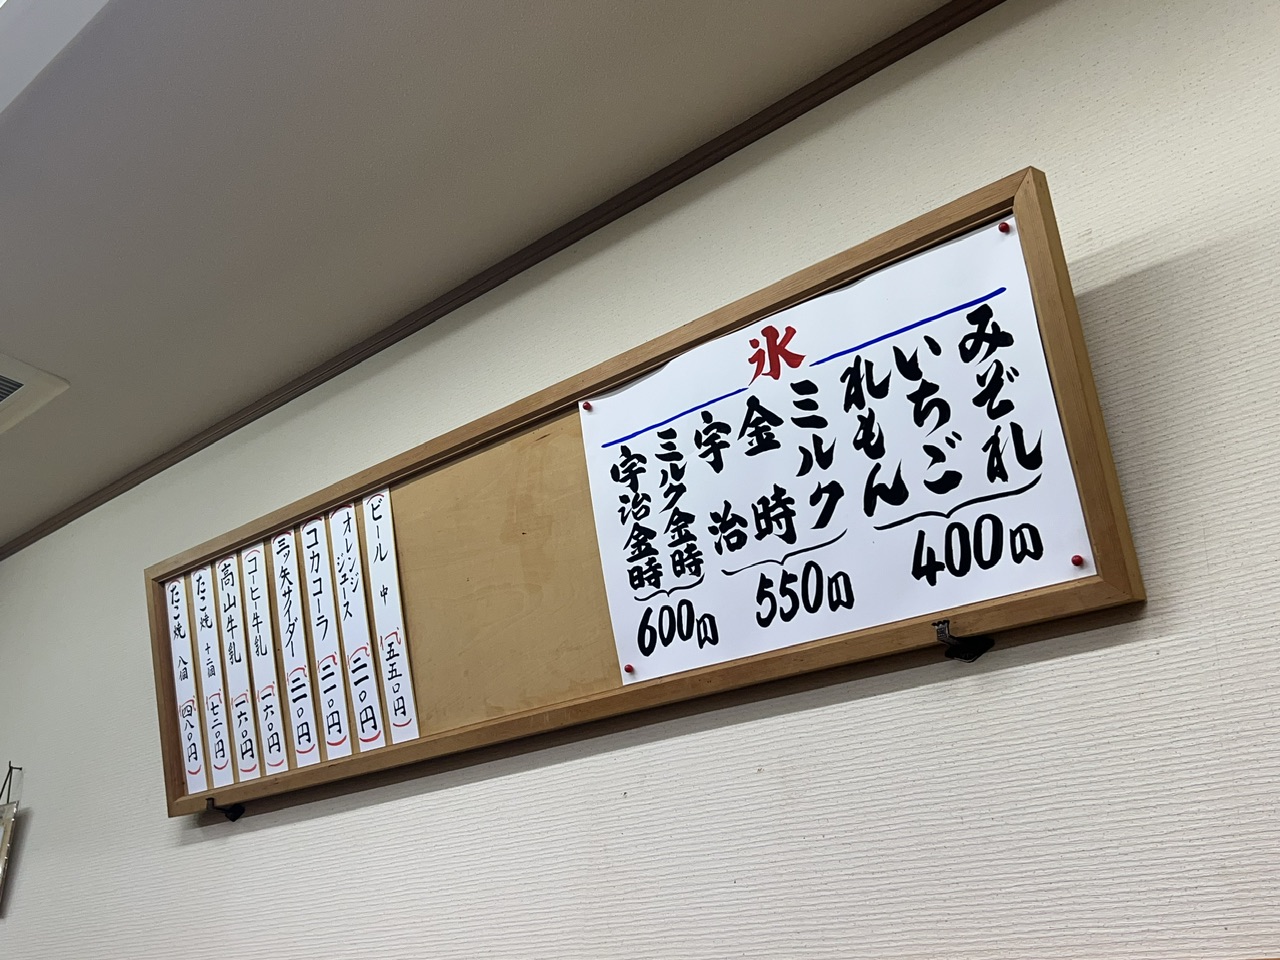 氷
みぞれ
いちご
れもん
400円
ミルク
金時
宇治
550円
ミルク金時
宇治金時
600円
ビール 中 五五〇円
オレンジジュース 二一〇円
コカコーラ 二一〇円
三ッ矢サイダー 二一〇円
コーヒー牛乳 一六〇円
高山牛乳 一六〇円
たこ焼 十二個 七二〇円
たこ焼 八個 四八〇円